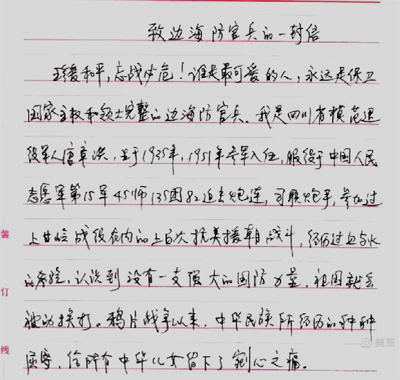 致边海防官兵的一封信
援和平,忘战必危!谁是最可爱的人,永远是保卫
国家主权和领土完整的边海防官兵。我是四川省模范退
役军人唐章洪,生于1935年,1951年参军入伍,服役于中国人民
志愿军第15军45师135团82迫击炮连,司职炮手,参加过
上甘岭战役在内的上百次抗美援朝战斗,经历过血与火
的考验,认识到没有一支强大的国防力量,祖国就会
被动挨打。鸦片战争以来,中华民族所经历的种种
屈辱,给所有中华儿女留下了剜心之痛。
装
订
线